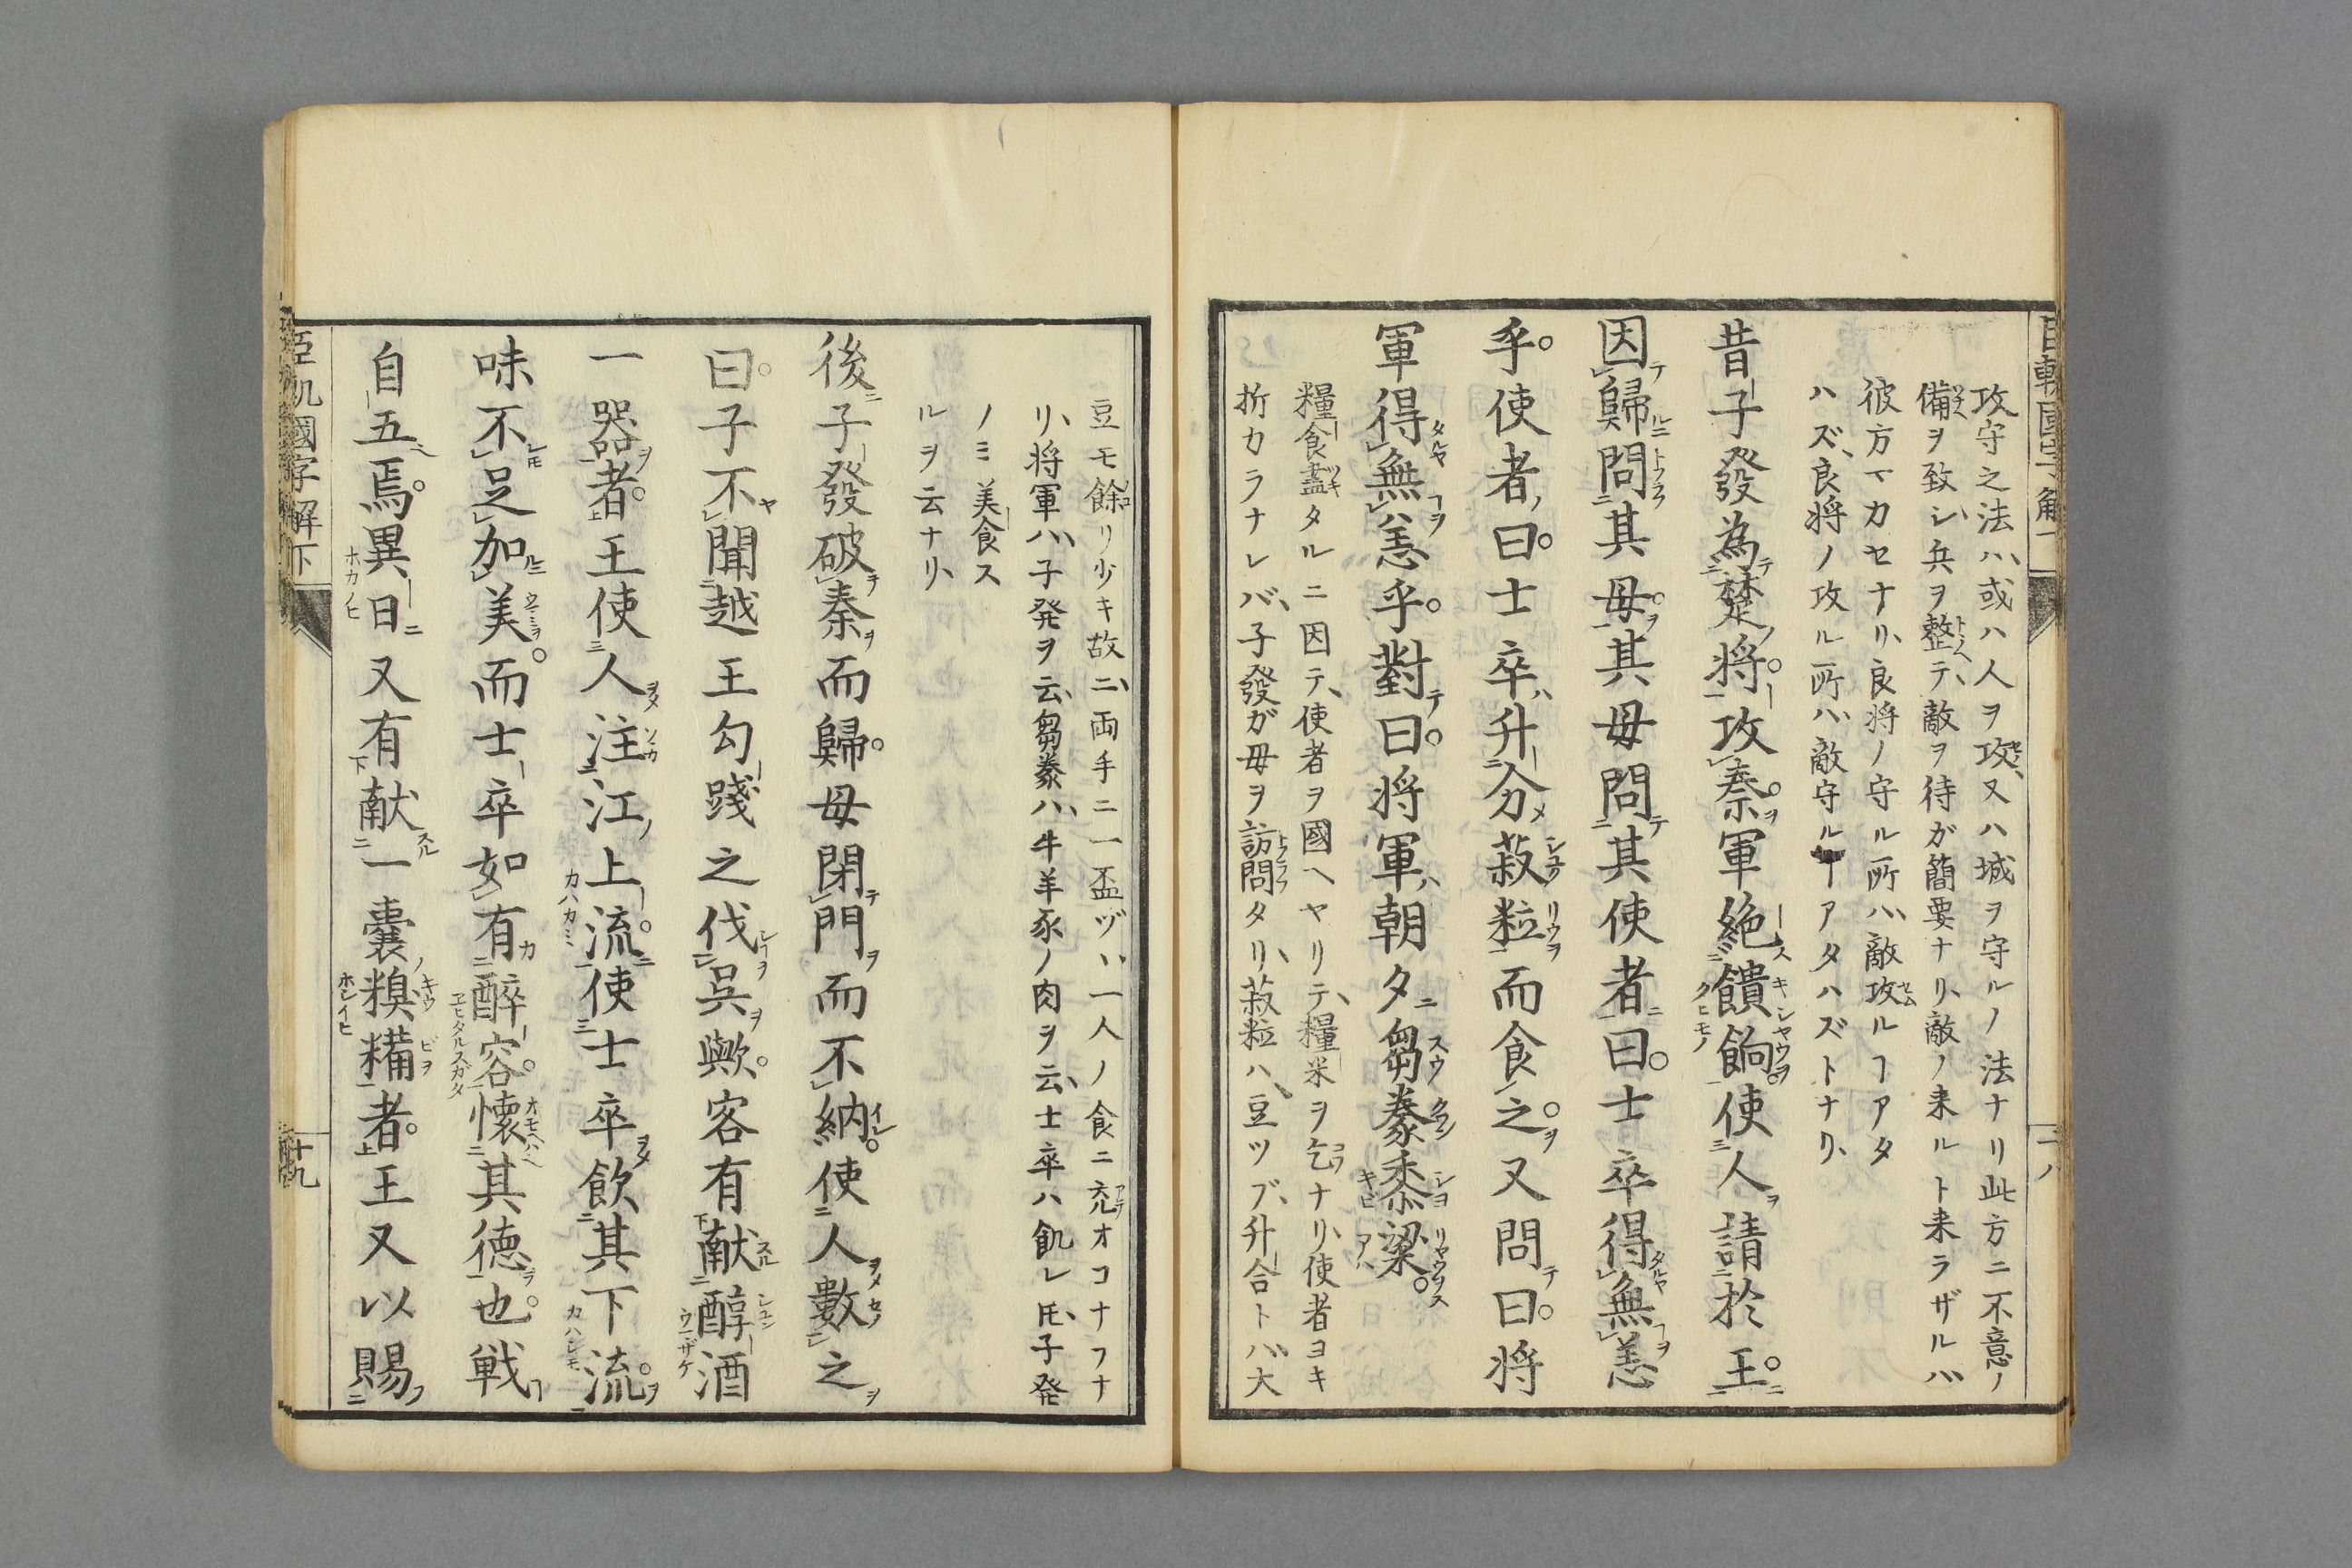 攻守之法ハ、或ハ人ヲ攻、又ハ城ヲ守ルノ法ナリ此方ニ不意ノ
備ヲ致シ、兵ヲ整テ、敵ヲ待ガ簡要ナリ、敵ノ来ルト来ラザルハ、
彼方マカセナリ、良将ノ守ル所ハ、敵攻ルヿアタ
ハズ、良将ノ攻ル所ハ、敵守ルヿアタハズトナリ、
昔子發為楚将攻秦軍絶饋餉使人請於王
因歸問其母其母問其使者曰士卒得無恙
乎使者曰士卒升分菽粒而食之又問曰将
軍得無恙乎對曰将軍朝夕芻豢黍梁
糧食盡タルニ因テ、使者ヲ國ヘヤリテ、糧米ヲ乞ナリ、使者ヨキ
折カラナレバ、子發ガ母ヲ訪問タリ、菽粒ハ、豆ツブ、升合トハ、大
豆モ餘リ少キ故ニ、両手ニ一盃ヅヽ一人ノ食ニ充オコナフナ
リ、将軍ハ、子発ヲ云、芻豢ハ、牛羊豕ノ肉ヲ云、士卒ハ飢レ𪜈、子発
ノミ美食ス
ルヲ云ナリ、
後子發破秦而歸母閉門而不納使人數之
曰子不聞越王勾踐之伐呉歟客有献醇酒
一器者王使人注江上流使士卒飲其下流
味不足加美而士卒如有醉容懐其徳也戦
自五焉異日又有献一嚢糗糒者王又以賜
臣軌國字解下
十九